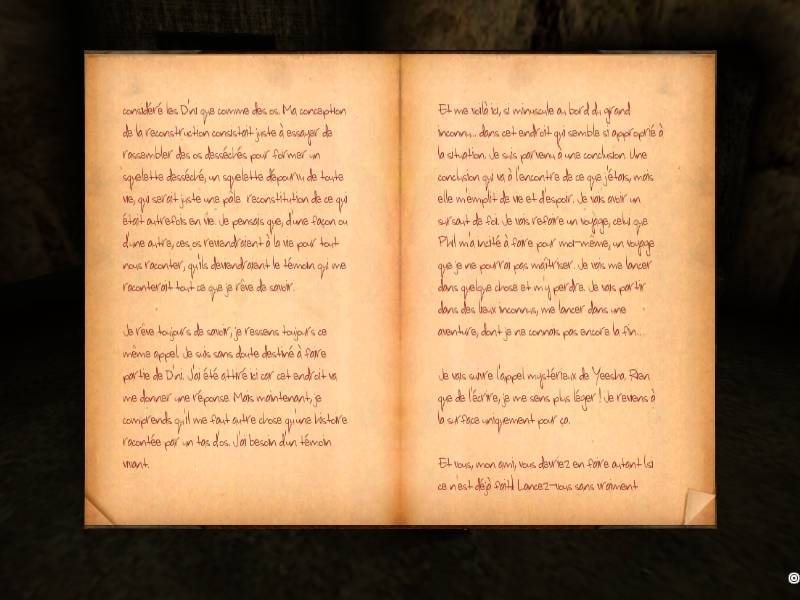 considéré les D'ni que comme des os. Ma conception
de la reconstruction consistait juste à essayer de
rassembler des os desséchés pour former un
squelette desséché, un squelette dépourvu de toute
vie, qui serait juste une pâle reconstitution de ce qui
était autrefois en vie. Je pensais que, d'une façon ou
d'une autre, ces os reviendraient à la vie pour tout
nous raconter, qu'ils deviendraient le témoin qui me
raconterait tout ce que je rêve de savoir.
Je rêve toujours de savoir, je ressens toujours ce
même appel. Je suis sans doute destiné à faire
partie de D'ni. J'ai été attiré ici car cet endroit va
me donner une réponse. Mais maintenant, je
comprends qu'il me faut autre chose qu'une histoire
racontée par un tas d'os. J'ai besoin d'un témoin
vivant.
Et me voilà ici, si minuscule au bord du grand
inconnu... dans cet endroit qui semble si approprié à
la situation. Je suis parvenu à une conclusion. Une
conclusion qui va à l'encontre de ce que j'étais, mais
elle m'emplit de vie et d'espoir. Je vais avoir un
sursaut de foi. Je vais refaire un voyage, celui que
Phil m'a incité à faire pour moi-même, un voyage
que je ne pourrai pas maîtriser. Je vais me lancer
dans quelque chose et m'y perdre. Je vais partir
dans des lieux inconnus, me lancer dans une
aventure, dont je ne connais pas encore la fin...
Je vais suivre l'appel mystérieux de Yeesha. Rien
que de l'écrire, je me sens plus léger ! Je reviens à
la surface uniquement pour ça.
Et vous, mon ami, vous devriez en faire autant (si
ce n'est déjà fait)! Lancez-vous sans vraiment